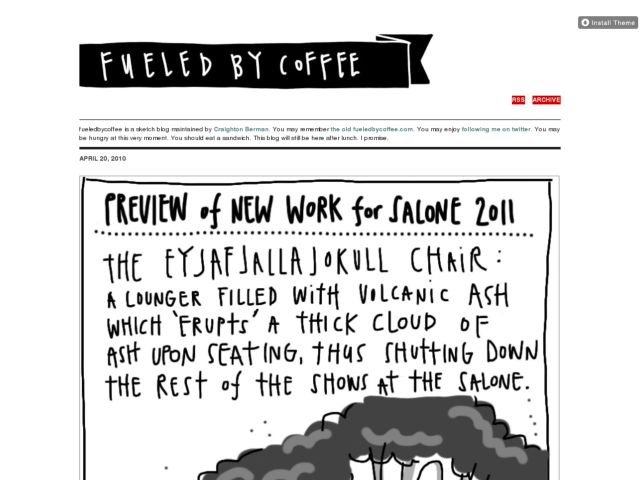 Install Theme
FUELED BY COFFEE
RSS ARCHIVE
fueledbycoffee is a sketch blog maintained by Craighton Berman. You may remember the old fueledbycoffee.com. You may enjoy following me on twitter. You may
be hungry at this very moment. You should eat a sandwich. This blog will still be here after lunch. I promise.
APRIL 20, 2010
PREVIEW of NEW WORK for SALONE 2011
THE EYJAFJALLAJOKULL CHAIR:
A LOUNGER FILLED WITH VOLCANIC ASH
WHICH 'ERUPTS' A THICK CLOUD OF
ASH UPON SEATING, THUS SHUTTING DOWN
THE REST of THE SHOWS AT THE SALONE.